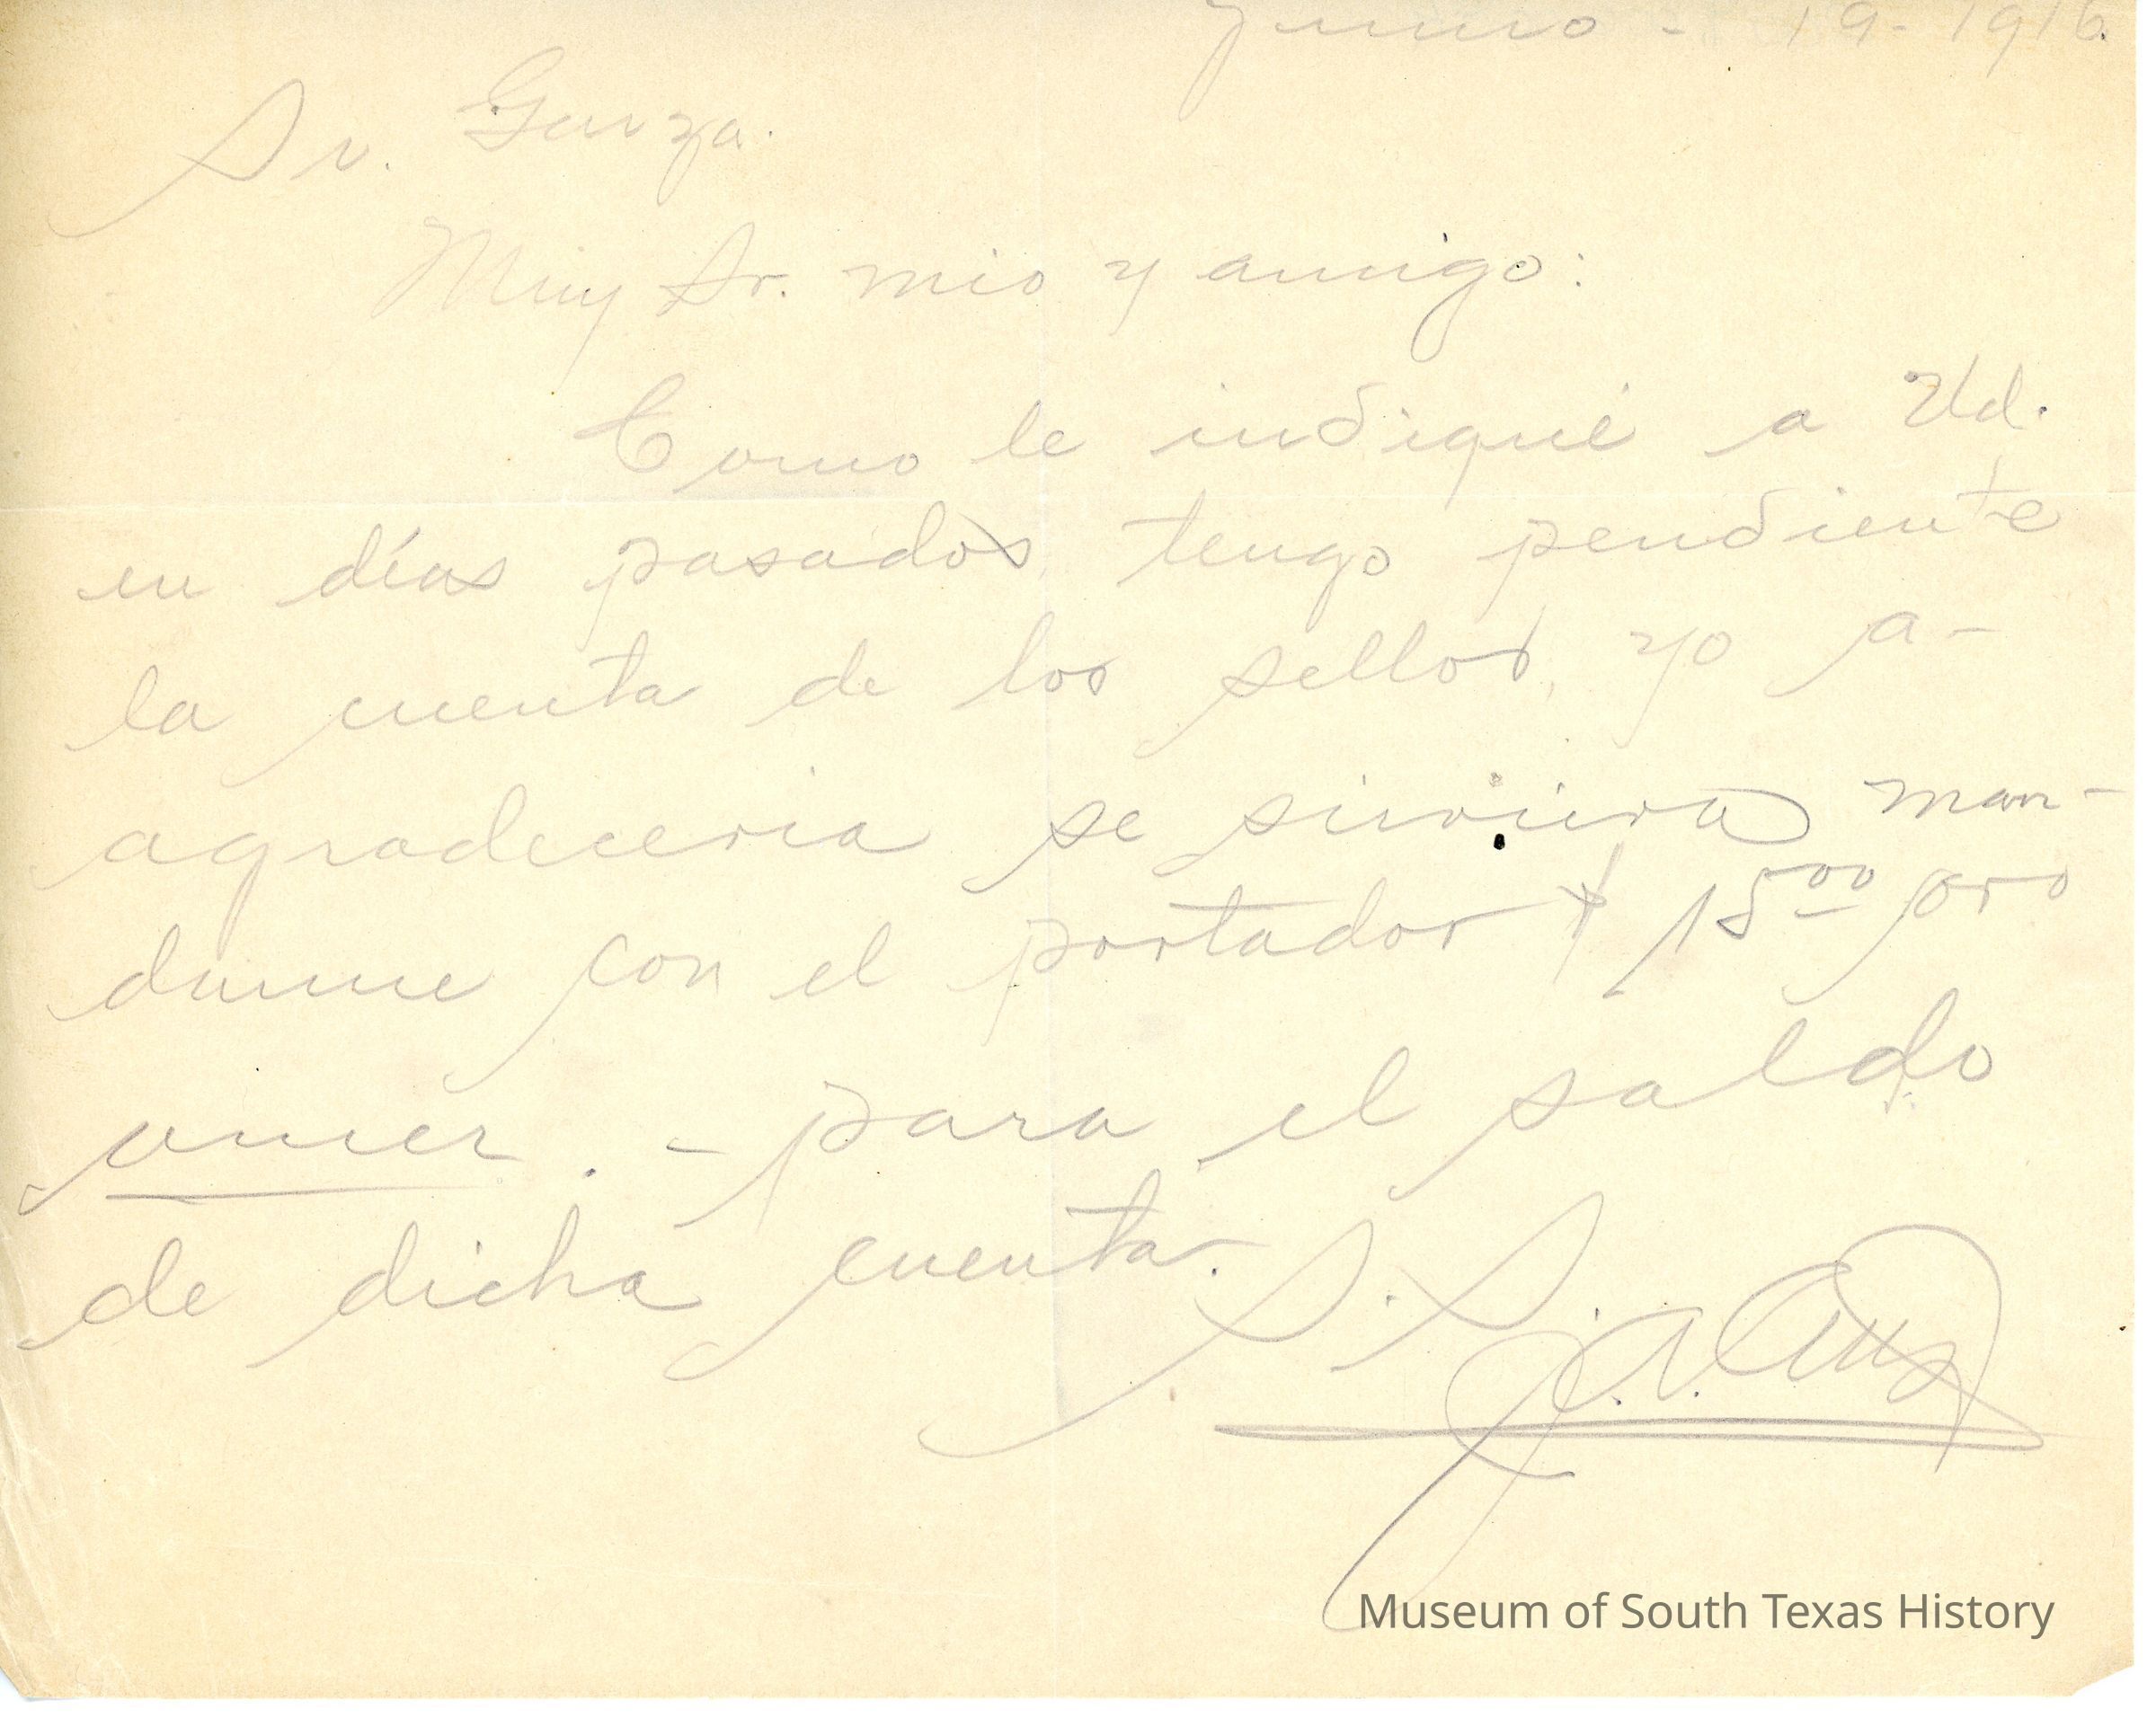 Junio - 19-1916.
Sr. Garza.
Muy Sr. mio y amigo:
Como le indiqué a Ud.
en días pasados, tengo pendiente
la cuenta de los sellos, yo a-
agradeceria se sirviera man-
darme con el portador $15 00 oro
amer. - para el saldo
de dicha cuenta.
S. S.
J. A.
Museum of South Texas History